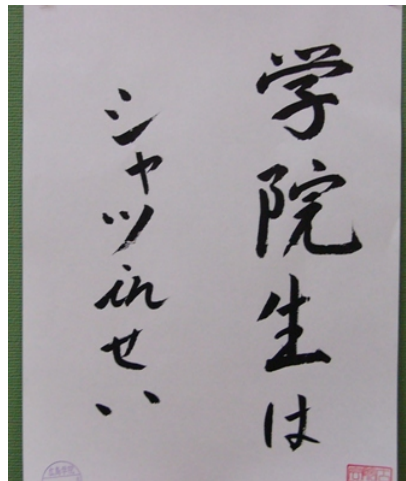 学院生は
シャツinせい